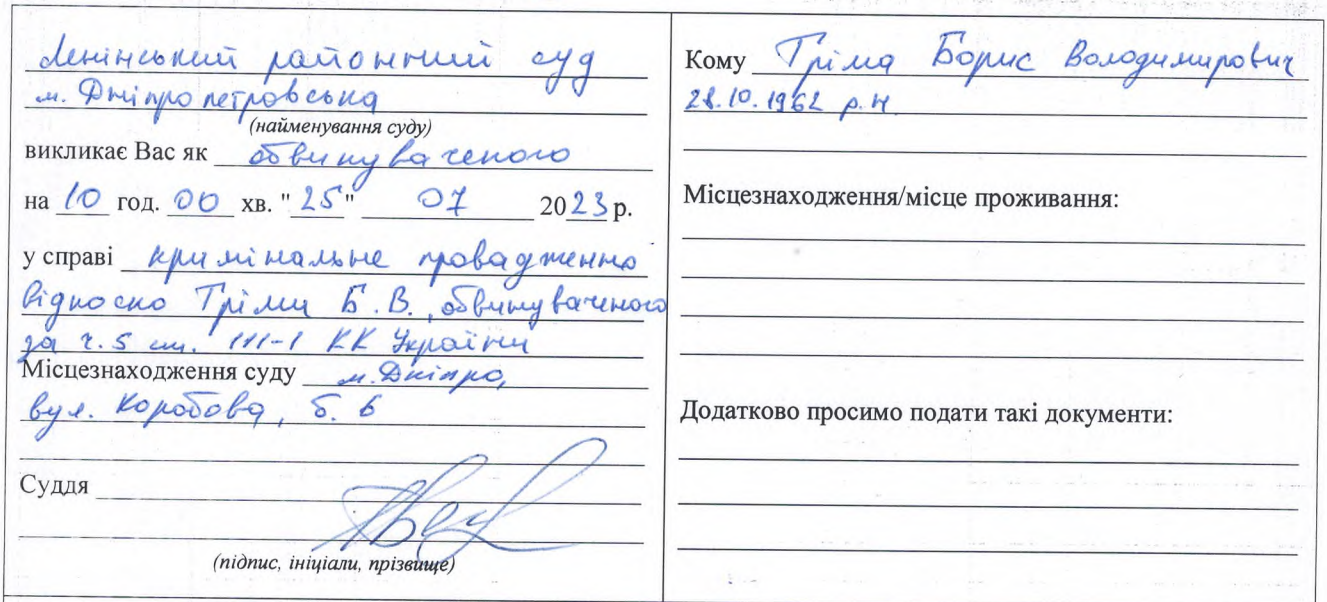 Ленінський районний суд
м. Дніпропетровська
(найменування суду)
викликає Вас як обвинуваченого
на 10 год. 00 хв. "25" 07 2023 р.
у справі кримінальне провадження
відносно Гріми Б.В., обвинуваченого
за ч.5 ст. 111-1 КК України
Місцезнаходження суду м. Дніпро,
вул. Коробова, б. 6
Суддя
(підпис, ініціали, прізвище)
Кому Гріма Борис Володимирович
28.10.1962 р.н.
Місцезнаходження/місце проживання:
Додатково просимо подати такі документи: